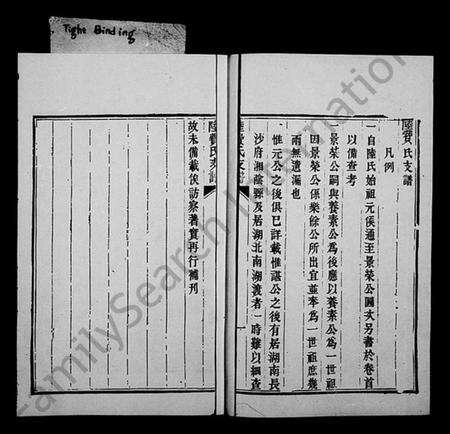 Tight Binding
陸費氏支譜
凡例
一自陸氏始祖元侯通至景榮公圖次另書於卷首
以備查考
景榮公嗣與養素公爲後應以養素公爲一世祖
因景榮公係樂餘公所出宜並奉爲一世祖庶幾
兩無遺漏也
惟元公之後俱已詳載惟謀公之後有居湖南長
沙府湘陰縣及居湖北南湖渡者一時難以細查
陸費氏支譜
一
陸費氏支譜
故未備載俟訪察著實再行補刊
FamilySearch International